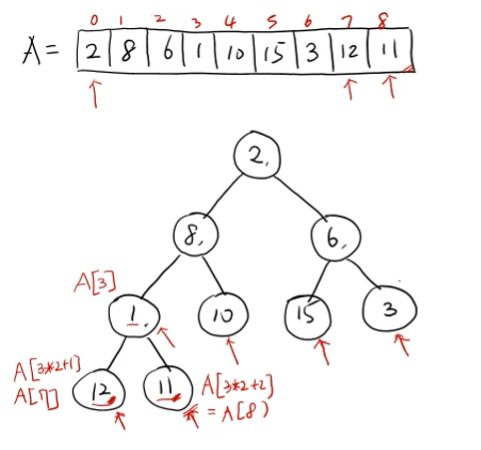 0 1 2 3 4 5 6 7 8
A = 2 8 6 1 10 15 3 12 11
2
8 6
A[3]
1 10 15 3
A[3*2+1]
A[7]
12 11
A[3*2+2]
= A[8]